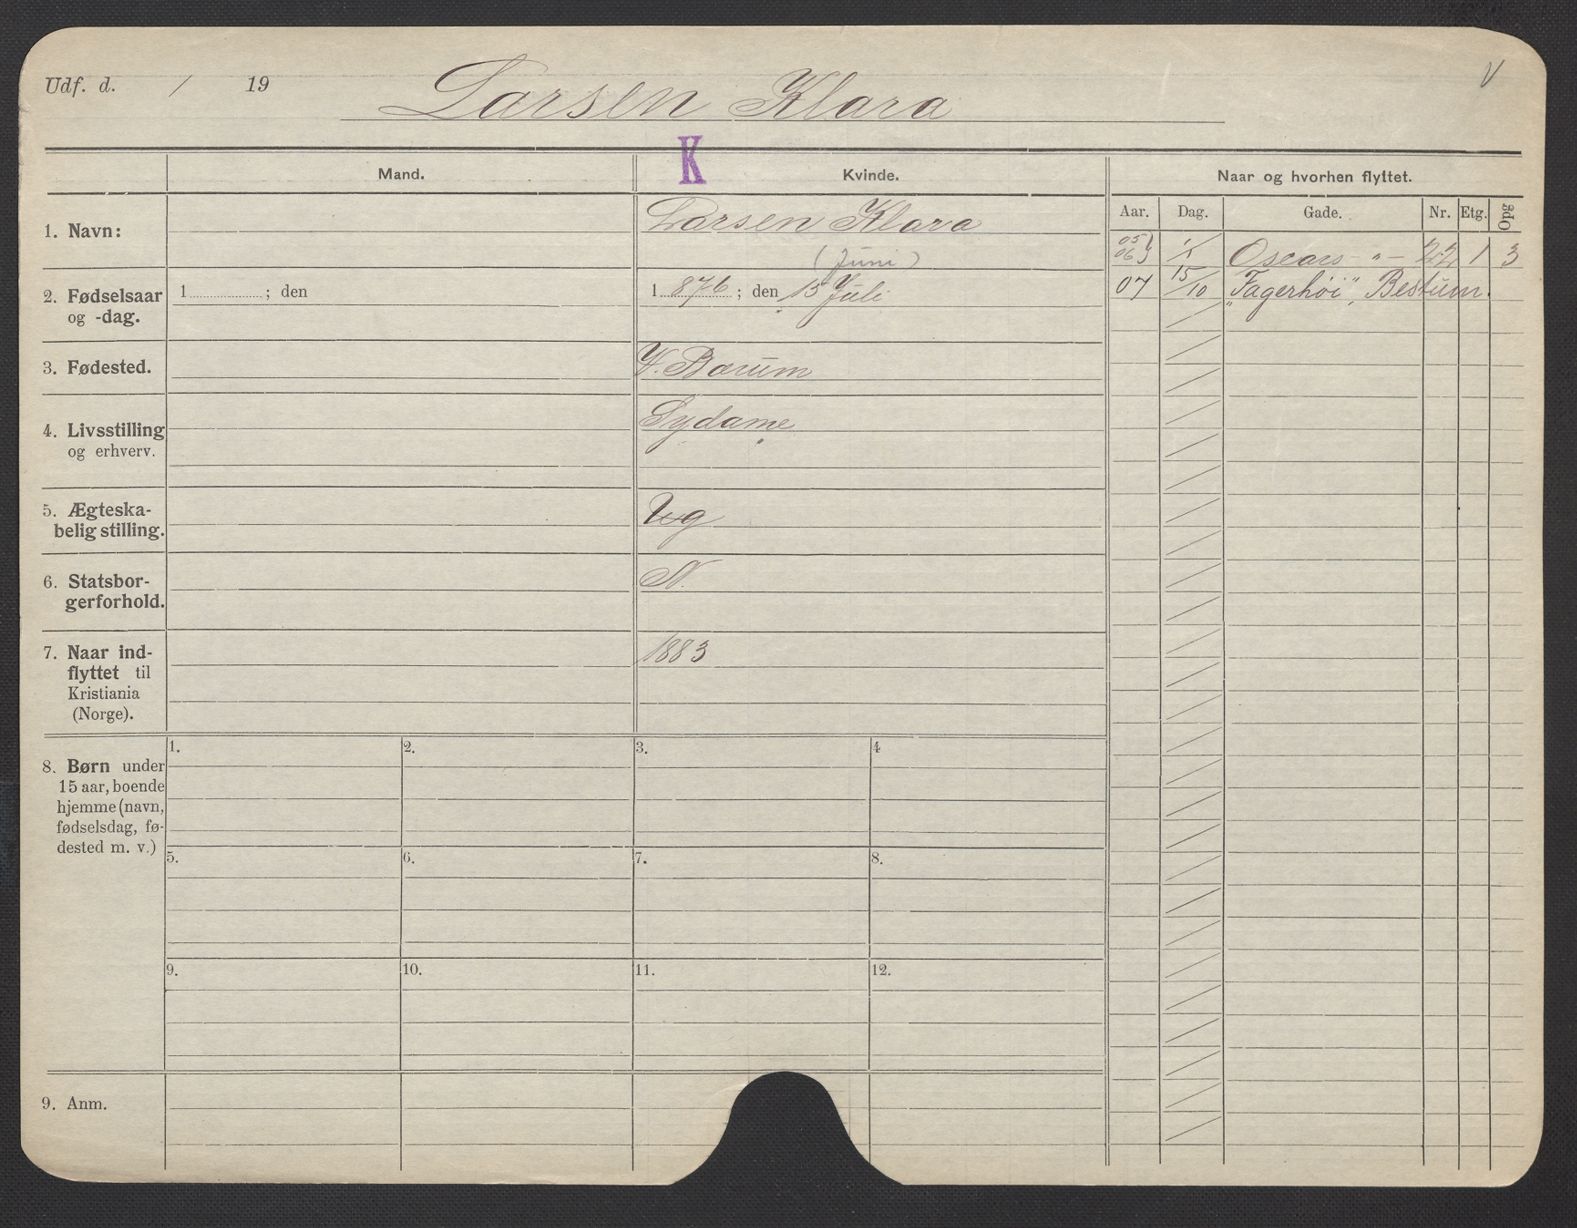 Udf. d. / 19 Larsen Klara V
K
Mand. Kvinde. Naar og hvorhen flyttet.
Aar. Dag. Gade. Nr. Etg. Opg
1. Navn: Larsen Klara
05 06 Oscars - " - 22 1 3
(Juni)
2. Fødselsaar og -dag. 1 ; den 1 876 ; den 15 Juli
07 15/10 "Fagerhöi", Bestum.
3. Fødested. V. Bærum
4. Livsstilling og erhverv. Sydame
5. Ægteska-
belig stilling. Ug
6. Statsbor-
gerforhold. N.
7. Naar ind-
flyttet til
Kristiania
(Norge). 1883
8. Børn under
15 aar, boende
hjemme (navn,
fødselsdag, fø-
dested m. v.)
1. 2. 3. 4
5. 6. 7. 8.
9. 10. 11. 12.
9. Anm.